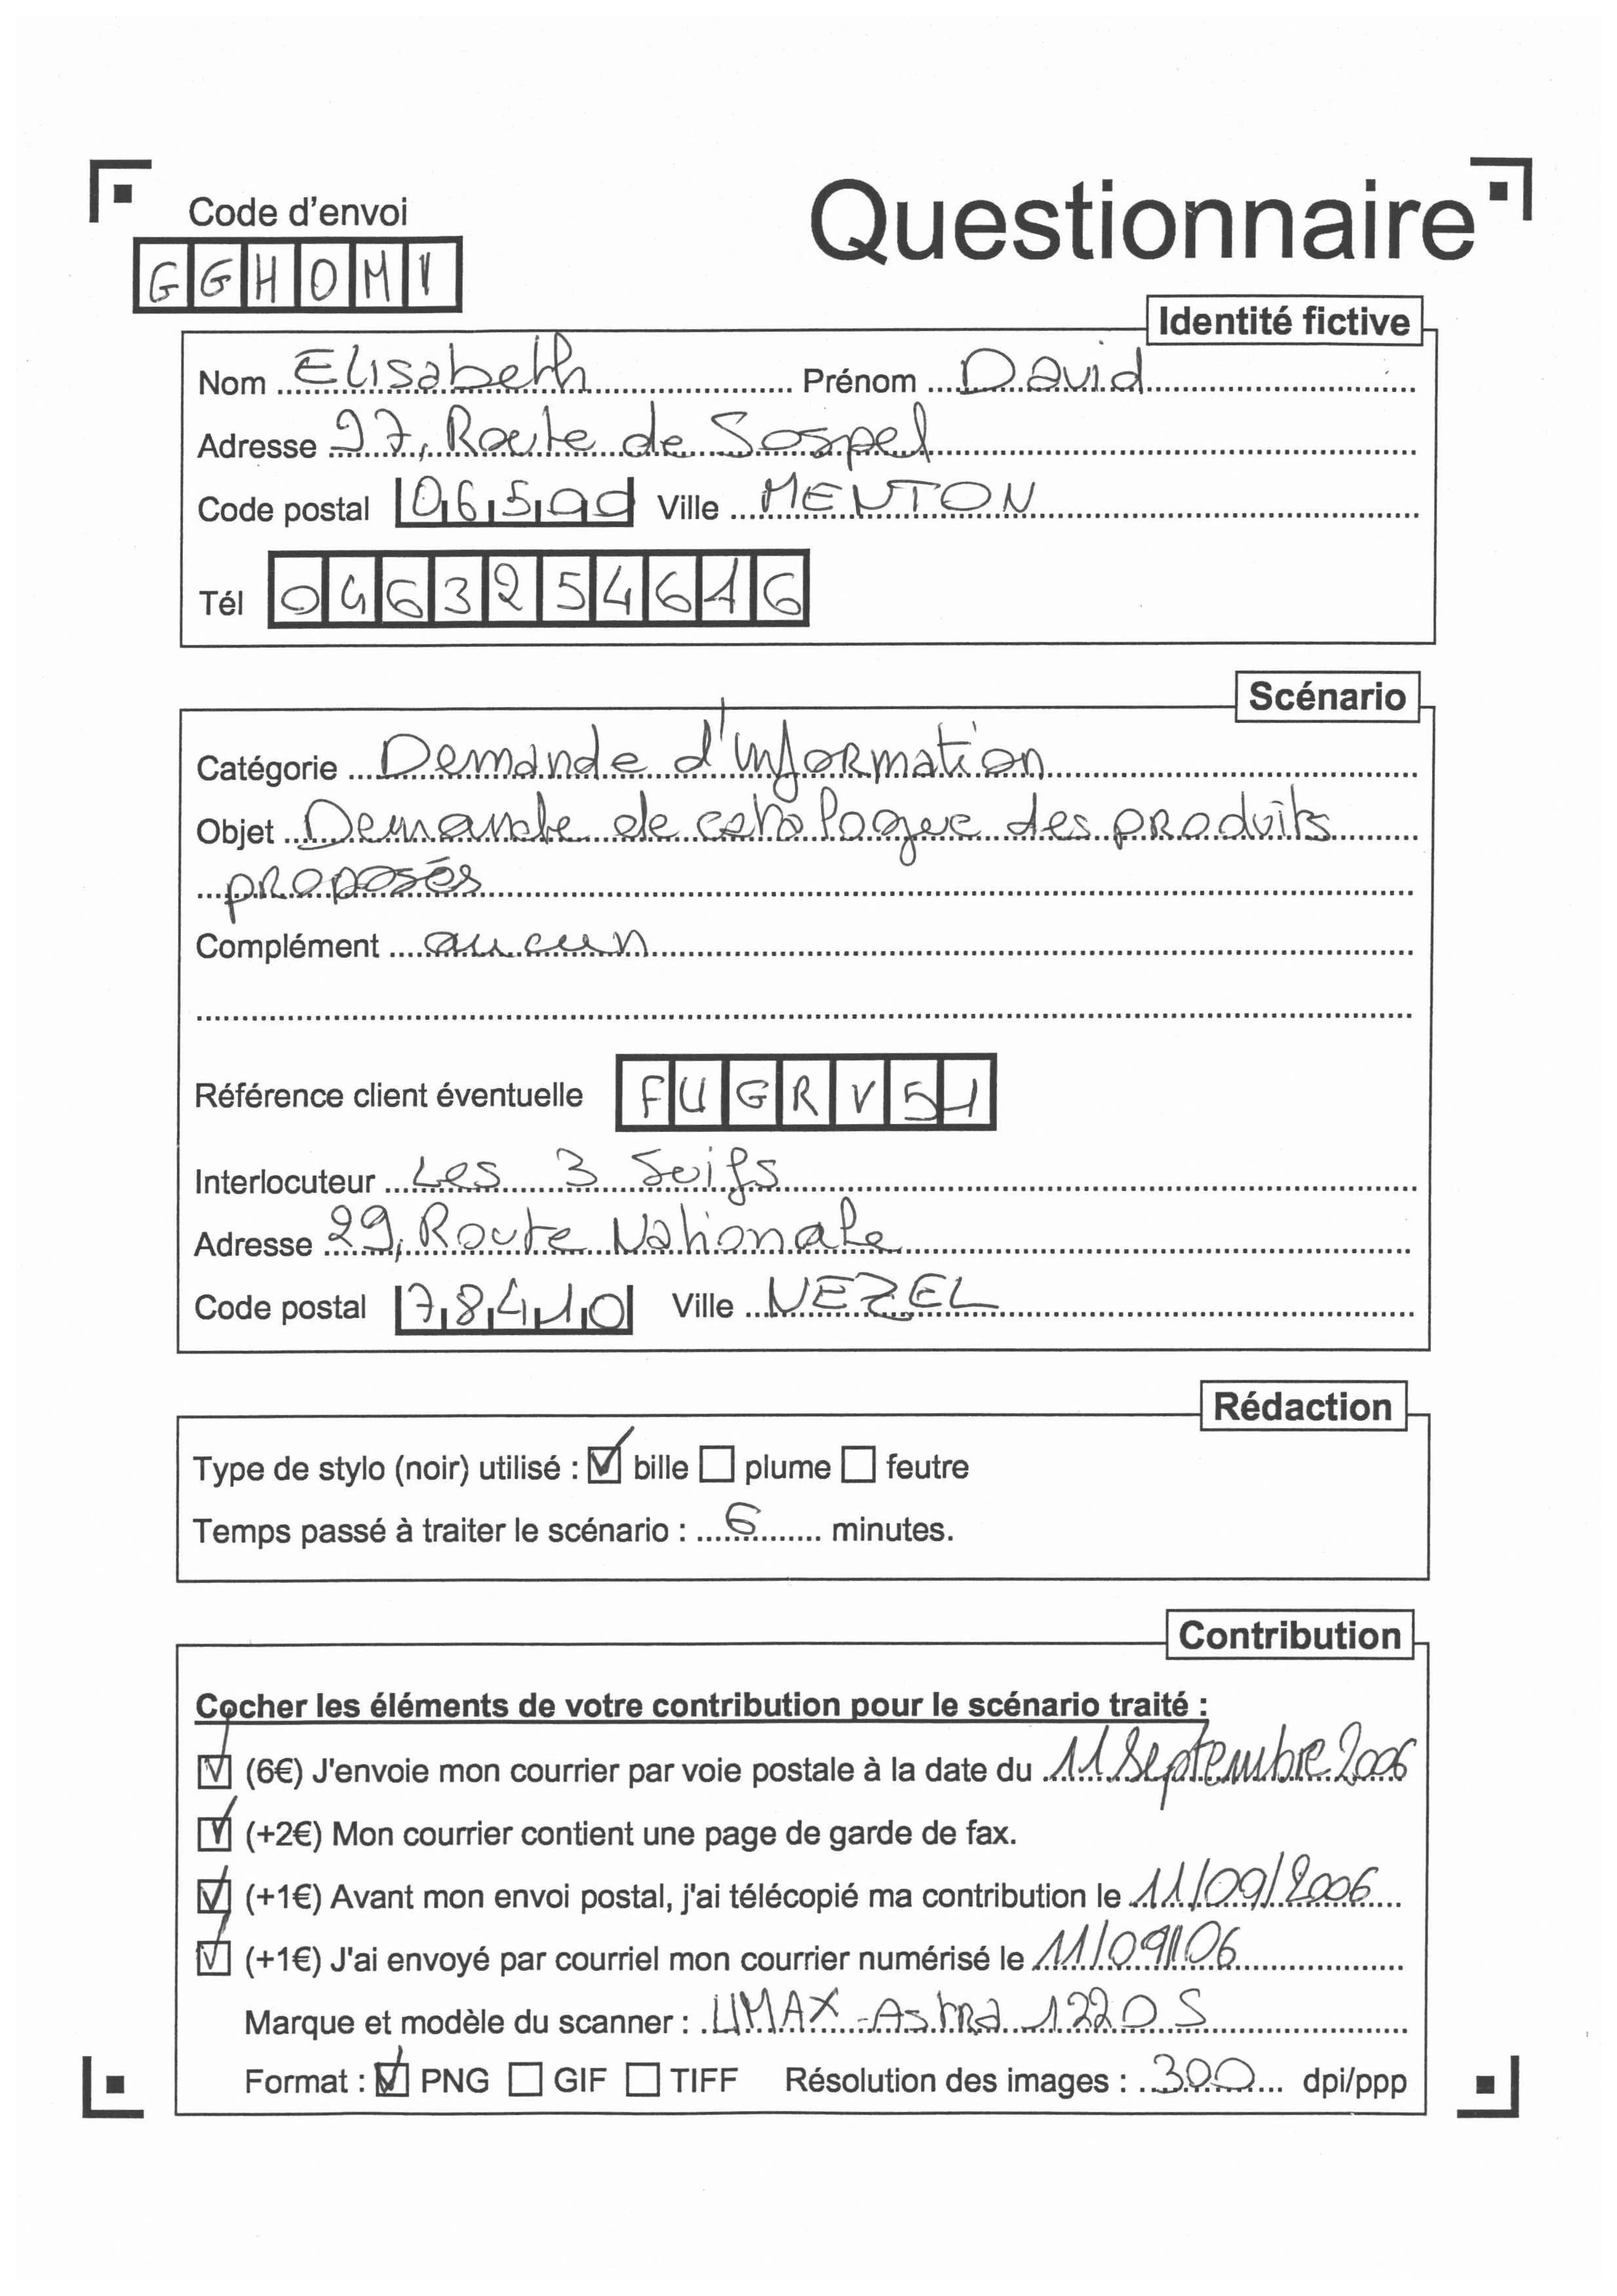 Code d'envoi
Questionnaire
GGHOMV
Identité fictive
Nom Elisabeth Prénom David
Adresse 97, Route de Sospel
Code postal 06500 Ville MENTON
Tél 0463254616
Scénario
Catégorie Demande d'information
Objet Demande de catalogue des produits
proposés
Complément aucun
Référence client éventuelle FUGRV51
Interlocuteur Les 3 Suifs
Adresse 29, Route Nationale
Code postal 78410 Ville NEZEL
Rédaction
Type de stylo (noir) utilisé : bille plume feutre
Temps passé à traiter le scénario : 6 minutes.
Contribution
Cocher les éléments de votre contribution pour le scénario traité :
(6€) J'envoie mon courrier par voie postale à la date du 11 Septembre 2006
(+2€) Mon courrier contient une page de garde de fax.
(+1€) Avant mon envoi postal, j'ai télécopié ma contribution le 11/09/2006
(+1€) J'ai envoyé par courriel mon courrier numérisé le 11/09/06
Marque et modèle du scanner : UMAX-Astra 1220 S
Format : PNG GIF TIFF Résolution des images : 300 dpi/ppp